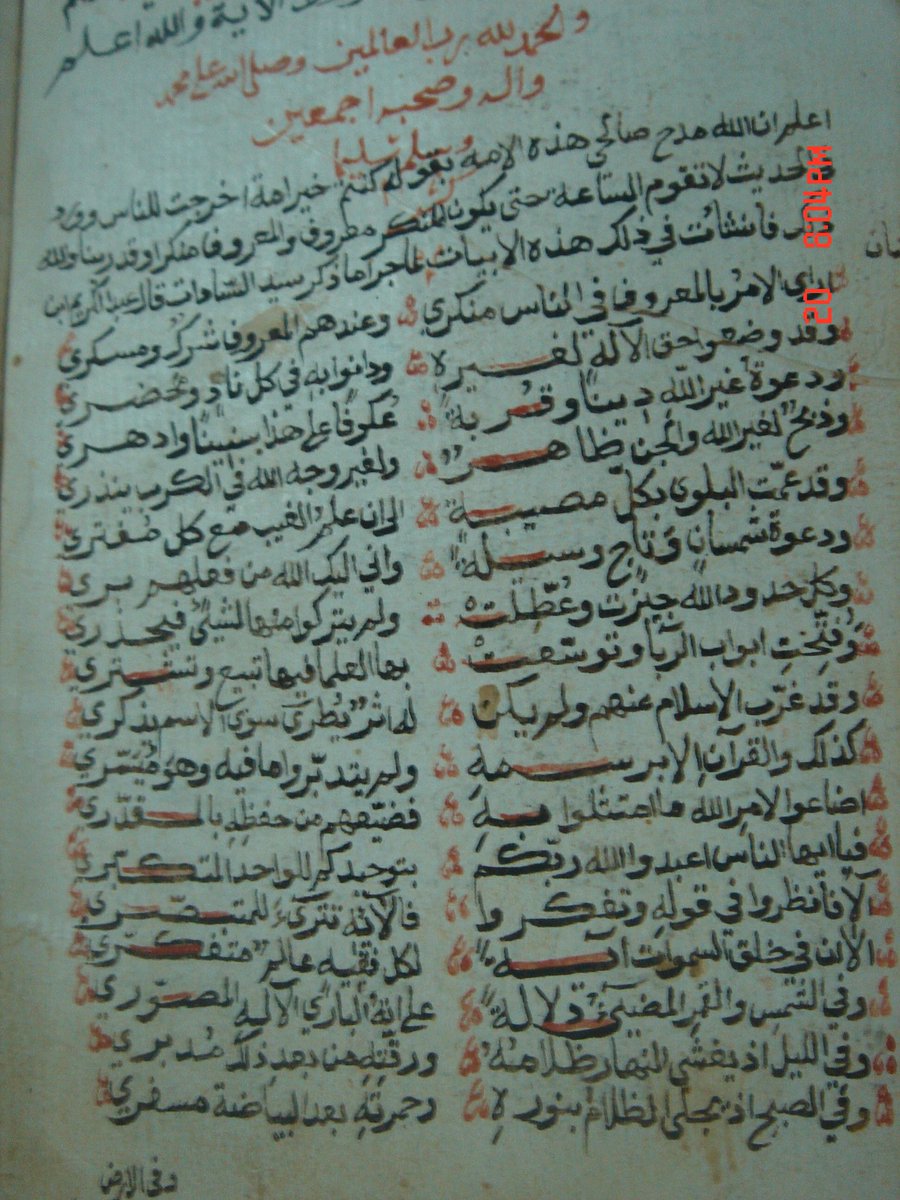 الآية والله اعلم
والحمد لله رب العالمين وصلى الله على محمد
واله وصحبه اجمعين
وسلم تسليما
اعلم ان الله مدح صالحي هذه الامة بقوله كنتم خير امة اخرجت للناس وورد
الحديث لا تقوم الساعة حتى يكون المنكر معروف والمعروف منكرا وقد رينا والله
فانشأت في ذلك هذه الابيات لما جرا ما ذكر سيد السادات قال عبد الكريم ابن
ارى الامر بالمعروف في الناس منكري وعندهم المعروف شرك ومسكري
وقد وضعوا حق الآله لغيره ودانوا به في كل ناد ومحضري
ودعوة غير الله دينا وقربة عكوفا على هذا سنينا وادهري
وذبح لغير الله والجن ظاهر ولغير وجه الله في الكرب ينذري
وقد عمت البلوى بكل مصيبة الى ان علم الغيب مع كل مفتري
ودعوة شمسان وتاج وسيلة واني اليك الله من فعلهم بري
وكل حدود الله جيزت وعطلت ولم يتركوا منها لشيئ فيحذري
وفتحت ابواب الربا وتوسعت بها العلما فيها تبيع وتشتري
وقد غرب الاسلام عنهم ولم يكن له اثر يطرى سوى الاسم يذكري
كذلك والقرآن الا برسمه ولم يتدبروا ما فيه وهو ميسري
اضاعوا لامر الله ما امتثلوا به فضيعهم من حفظه بالمقدري
فيا ايها الناس اعبدوا الله ربكم بتوحيدكم للواحد المتكبري
الا فانظروا في قوله وتفكروا فالآته تترى للمتبصري
الا ان في خلق السموات آية لكل فقيه عالم متفكري
وفي الشمس والقمر المضيئ دلالة على انه الباري الآليه المصوري
وفي الليل اذ يغشى النهار ظلامه ورقته من بعد ذلك مدبري
وفي الصبح اذ يجلى الظلام بنوره وحمرته بعد البياضة مسفري
وفي الارض
20 8:04 PM